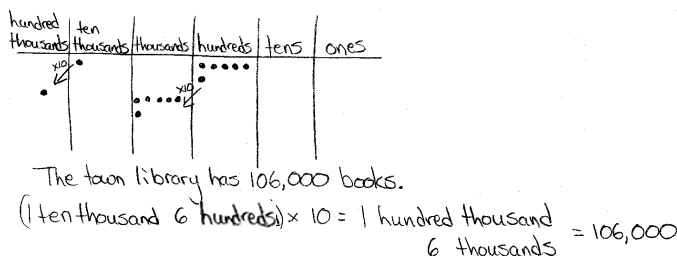 hundred thousands ten thousands thousands hundreds tens ones
x10 x10
The town library has 106,000 books.
(1 ten thousand 6 hundreds) × 10 = 1 hundred thousand
6 thousands = 106,000